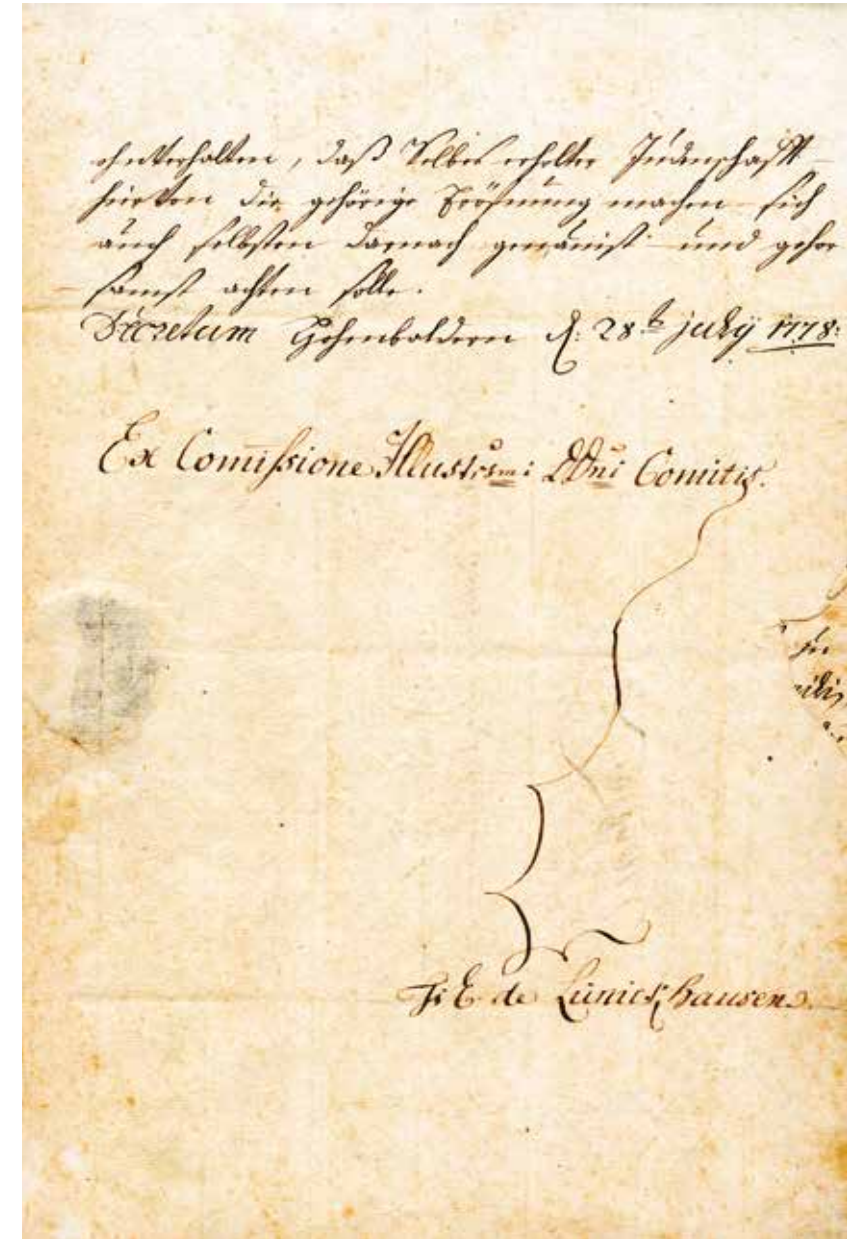 ohnverhalten, daß Selbes erholter Judenschafft
hiervon die gehörige Eröfnung machen sich
auch selbsten darnach genauist und gehor
samst achten solle.
Decretum Hohenbaldern d: 28t July 1778:
Ex Comißione Illustrsmi: DDni Comitis.
de Lünickhausen